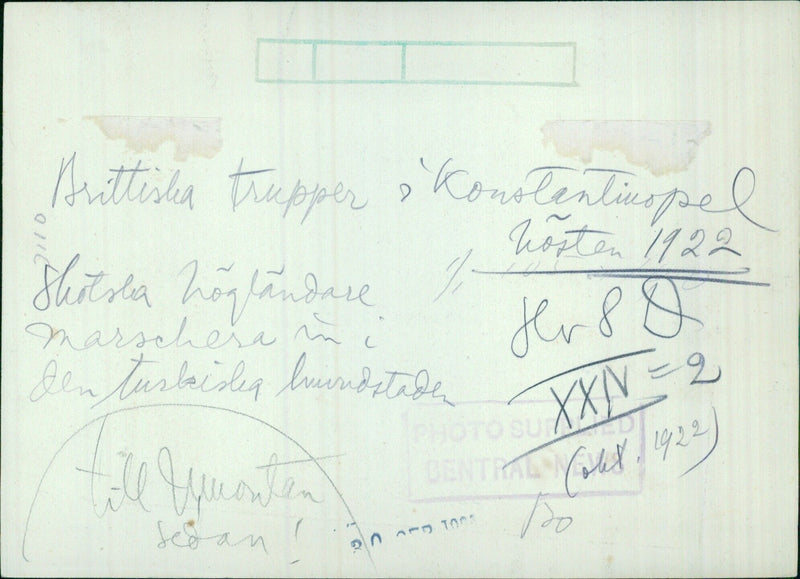 Brittiska trupper i Konstantinopel
hösten 1922
Skotska högländare
marschera in i
den turkiska huvudstaden
Hv 8 D
XXIV = 2
(okt. 1922)
PHOTO SUPPLIED
CENTRAL NEWS
till
sedan!